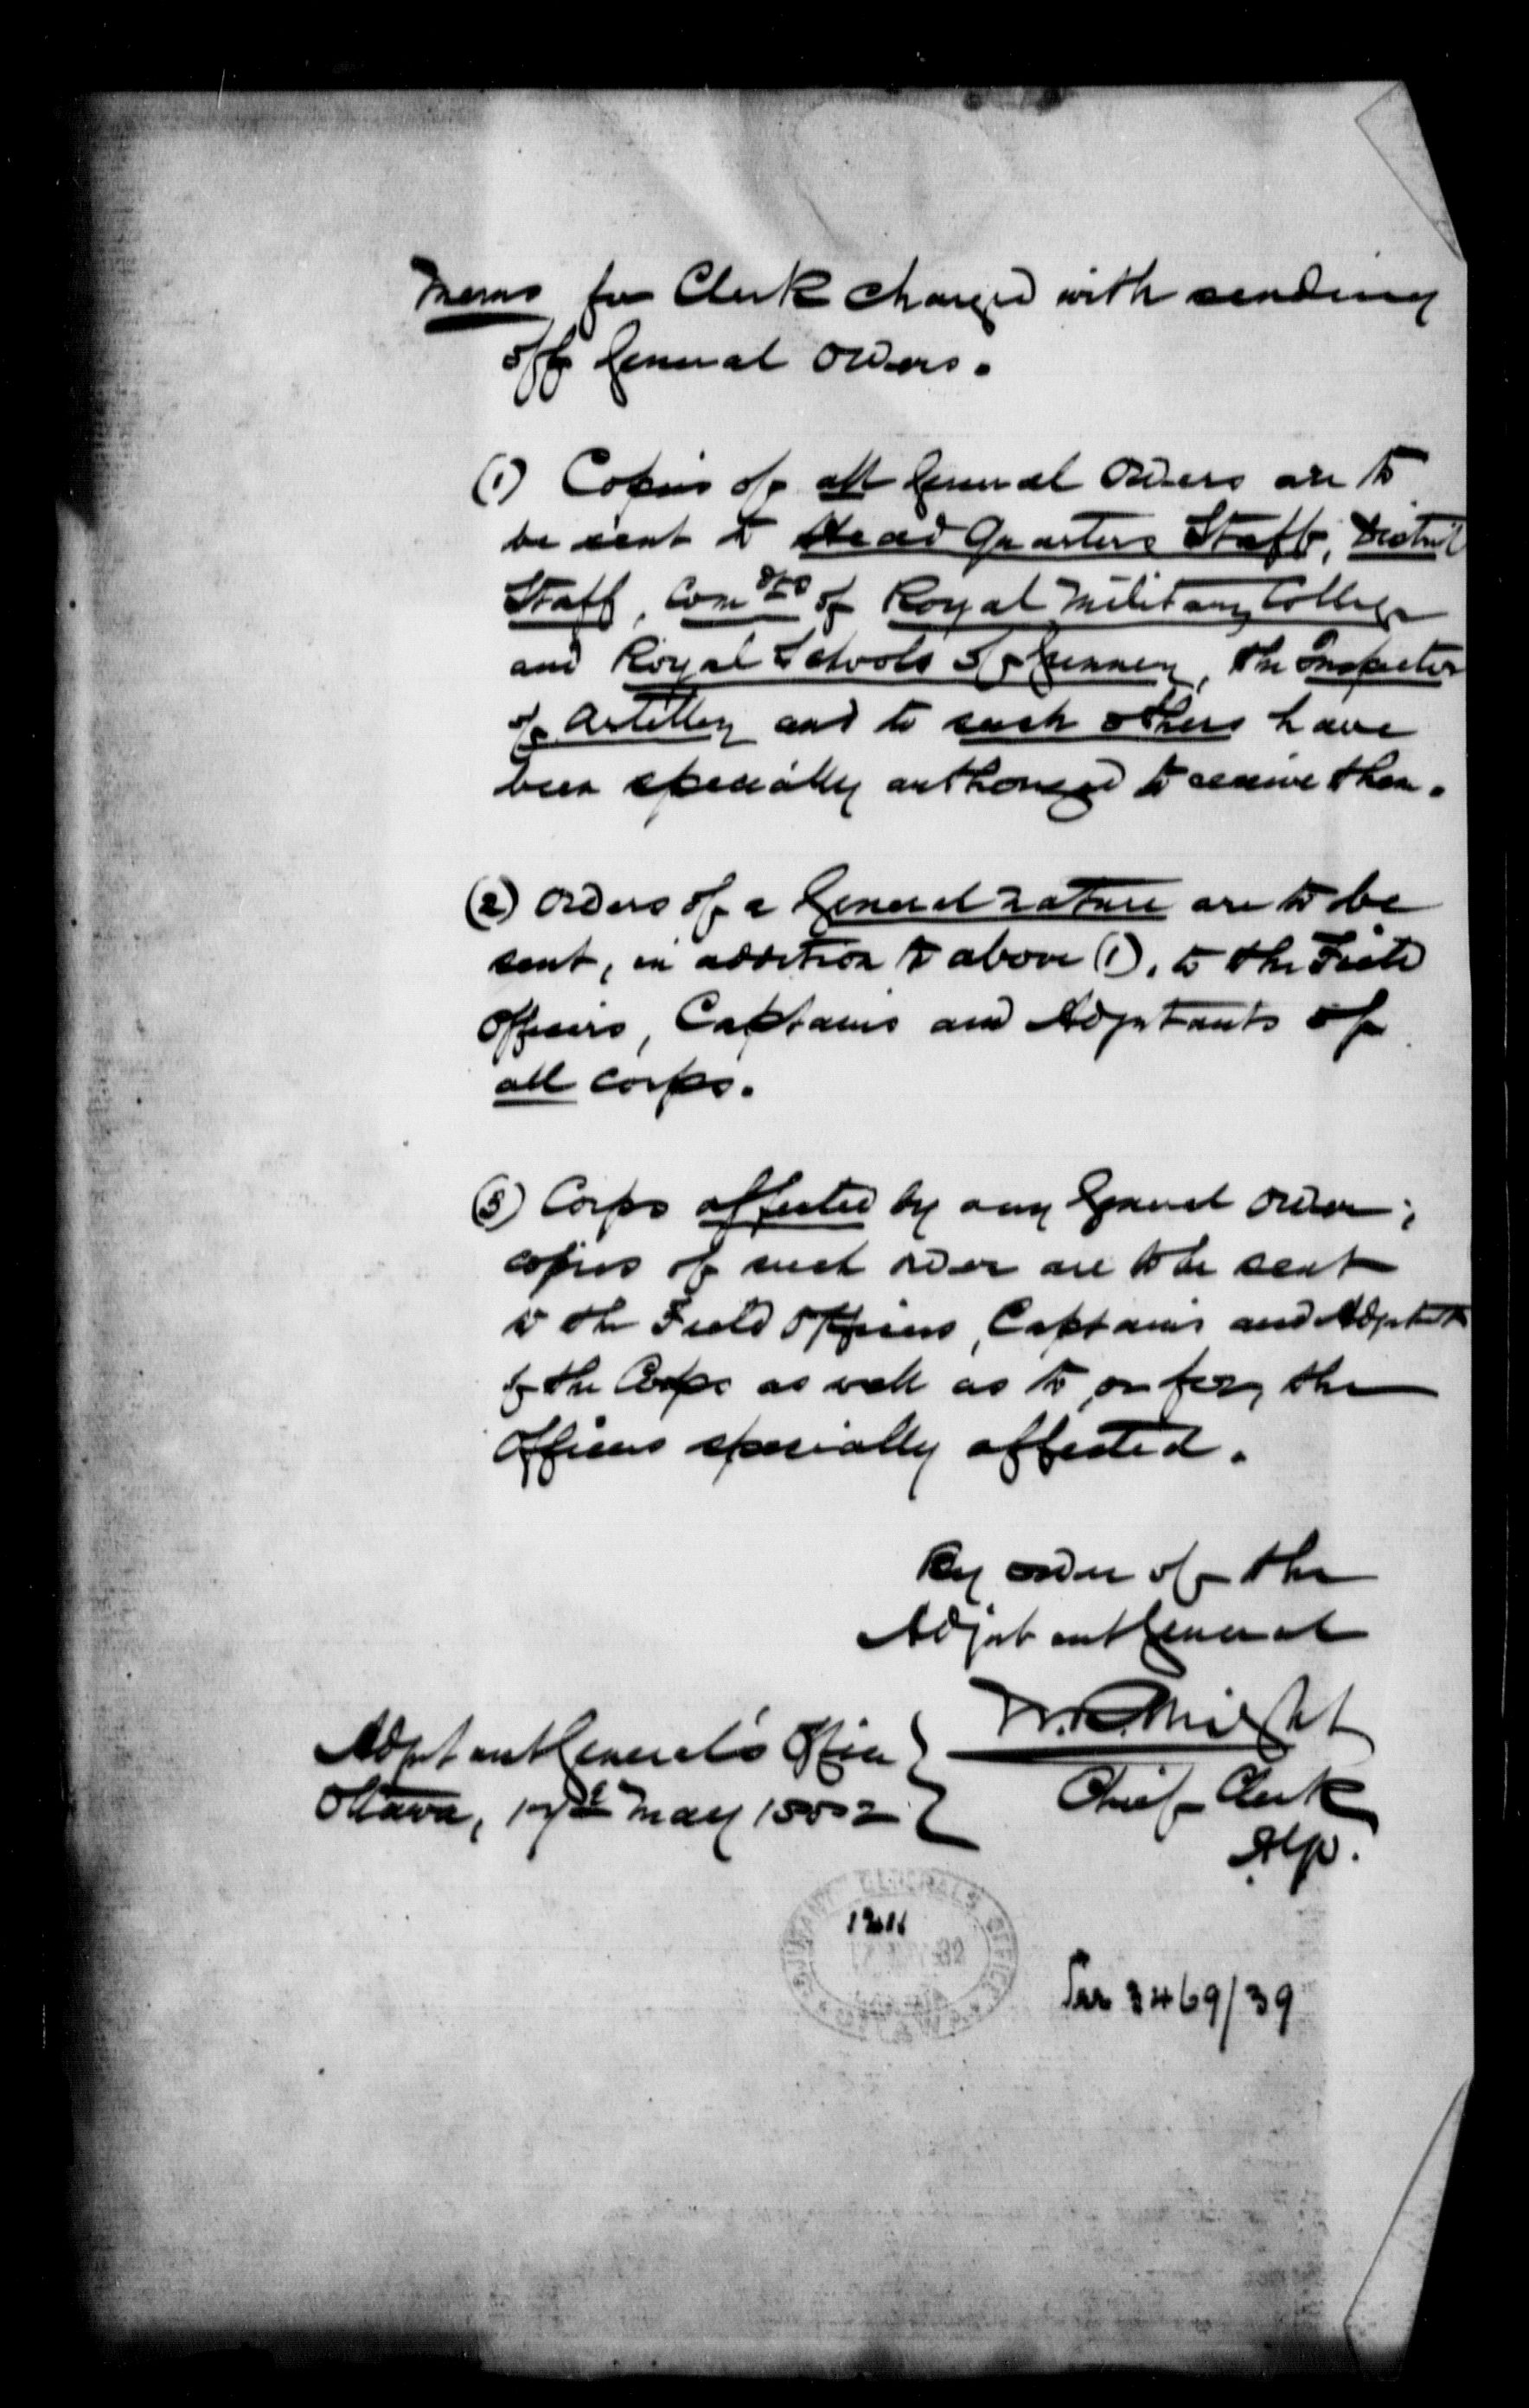 Memo for Clerk charged with sending
off General Orders.
(1) Copies of all General Orders are to
be sent to Head Quarters Staff, District
Staff, Comdts of Royal Military College
and Royal Schools of Gunnery, the Inspector
of Artillery and to such others have
been specially authorized to receive them.
(2) Orders of a General nature are to be
sent, in addition to above (1), to the Field
Officers, Captains and Adjutants of
all corps.
(3) Corps affected by any General Order;
copies of such order are to be sent
to the Field Officers, Captains and Adjutants
of the Corps as well as to, or for, the
Officers specially affected.
By order of the
Adjutant General
Chief Clerk
Adjutant General's Office
Ottawa, 17th May 1882
ADJUTANT GENERALS OFFICE
OTTAWA
3469/39